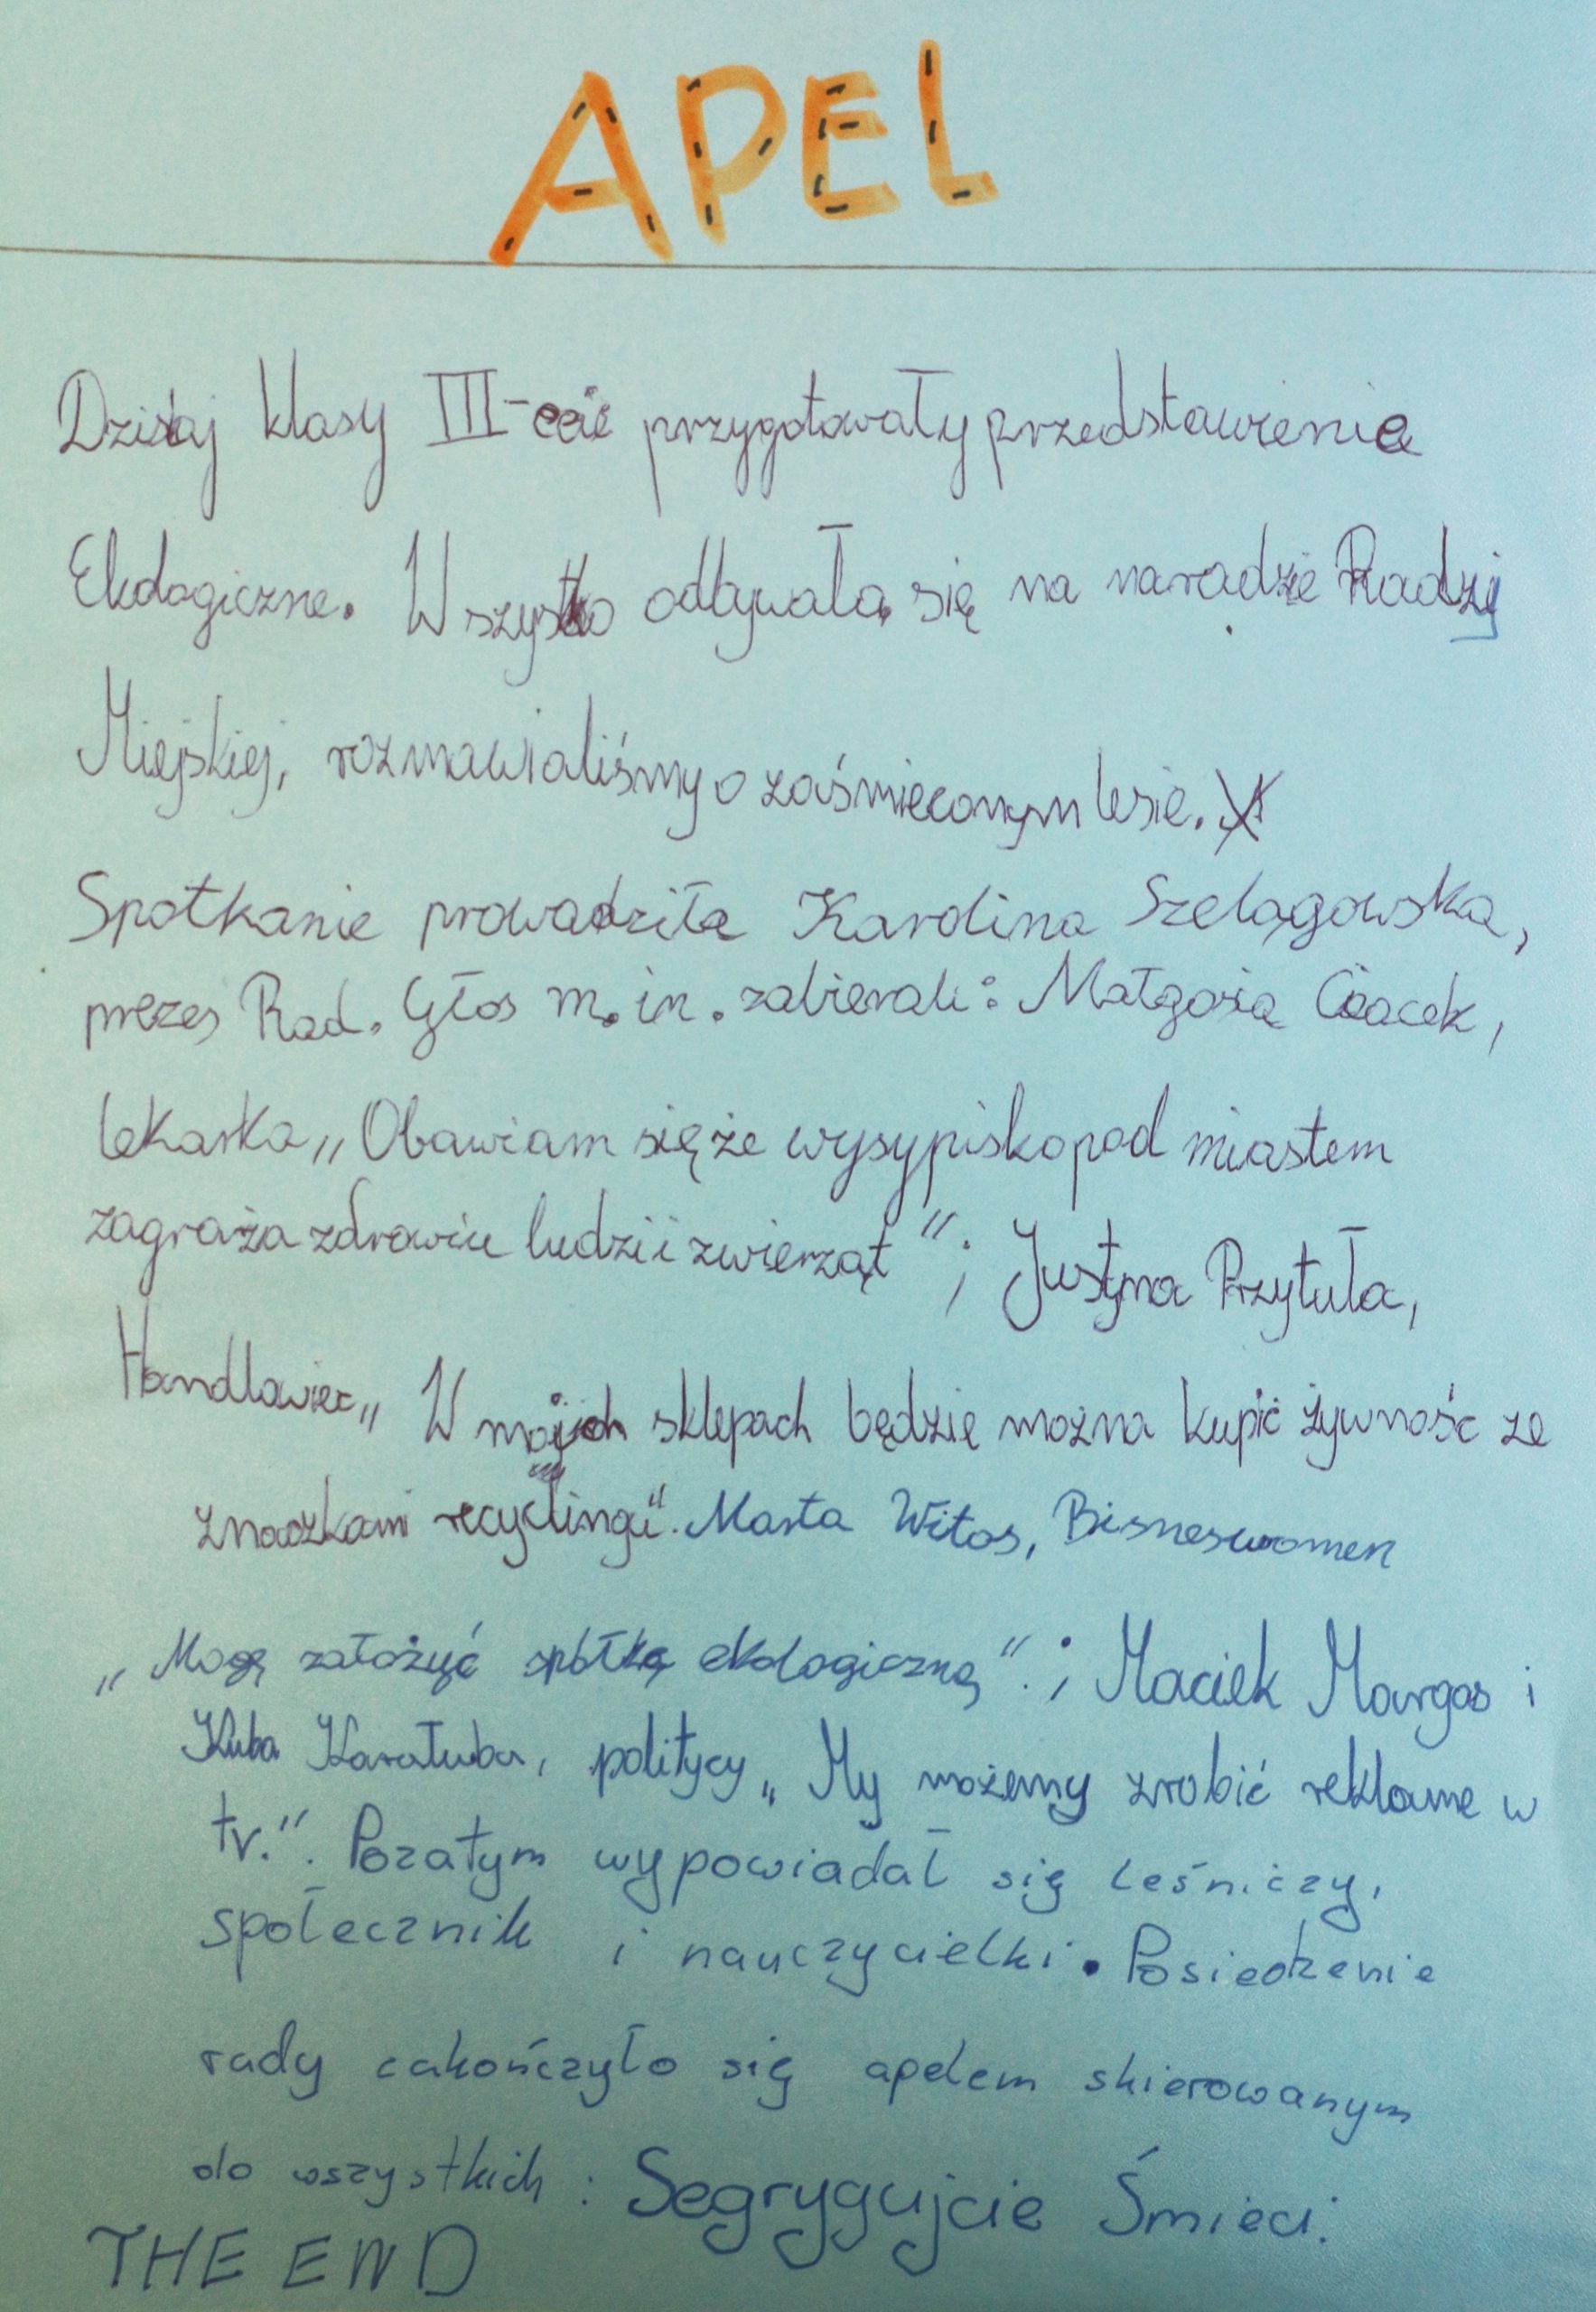 APEL
Dzisiaj klasy III-ecie przygotowały przedstawienie
Ekologiczne. Wszystko odbywała się na naradzie Radzy
Miejskiej, rozmawialiśmy o zaśmieconym lesie.
Spotkanie prowadziła Karolina Szelągowska,
prezes Rad. Głos m. in. zabierali: Małgosia
lekarka „Obawiam się że wysypisko pod miastem
zagraża zdrowiu ludzi i zwierząt"; Justyna Przytuła,
Handlowiec „W moich sklepach będzie można kupić żywność ze
znaczkami recyclingu". Marta Witos, Bisneswomen
„Mogę założyć spółkę ekologiczną".; Maciek Margas i
Kuba Karałuba, politycy „My możemy zrobić reklame w
tv.". Pozatym wypowiadał się leśniczy,
społecznik i nauczycielki. Posiedzenie
rady zakończyło się apelem skierowanym
do wszystkich: Segrygujcie Śmieci!
THE END